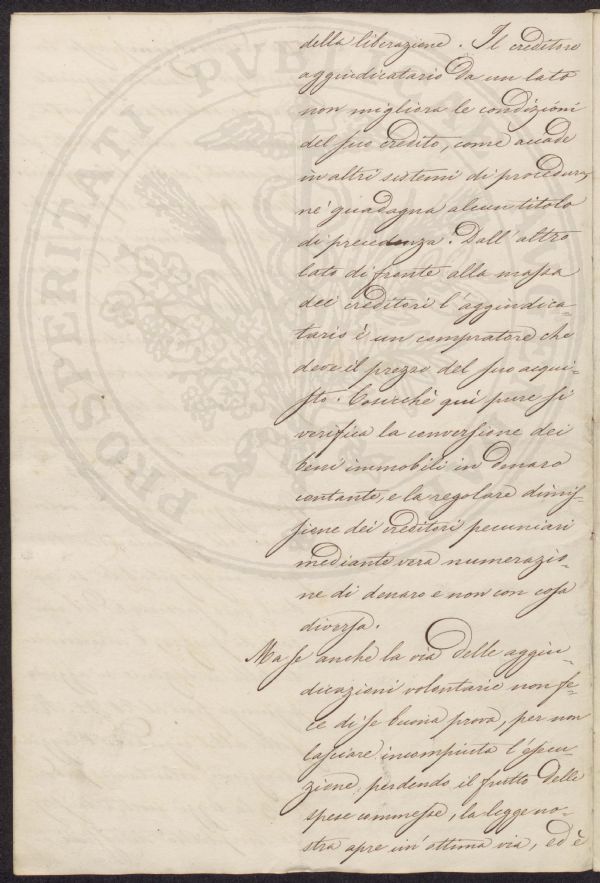 della liberazione. Il creditore
aggiudicatario da un lato
non migliora le condizioni
del suo credito, come accade
in altri sistemi di procedura,
nè guadagna alcun titolo
di precedenza. Dall'altro
lato di fronte alla massa
dei creditori l'aggiudica-
tario è un compratore che
deve il prezzo del suo acqui-
sto. Cosicchè qui pure si
verifica la conversione dei
beni immobili in denaro
contante, e la regolare dimis-
sione dei creditori pecuniari
mediante vera numerazio-
ne di denaro e non con cosa
diversa.
Ma se anche la via delle aggiu-
dicazioni volontarie non fe-
ce di se buona prova, per non
lasciare incompiuta l'esecu-
zione, perdendo il frutto delle
spese commesse, la legge no-
stra apre un'ottima via, ed è
PROSPERITATI PUBLICAE